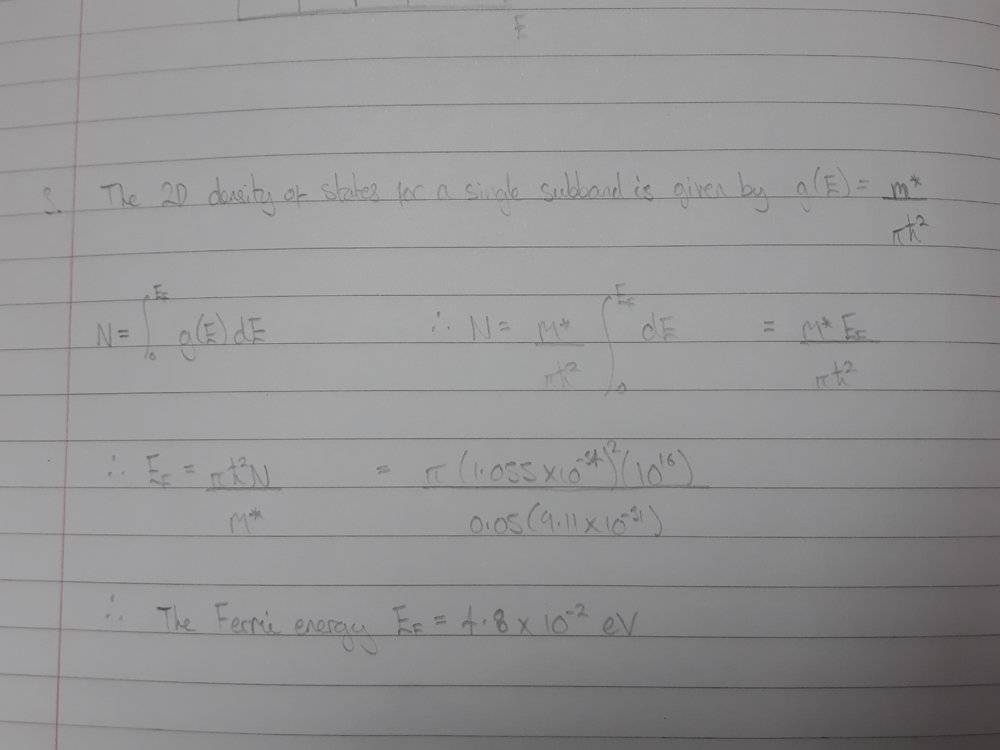 E
3. The 2D density of states for a single subband is given by g(E) = m* / πħ²
N = ∫₀^{E_F} g(E) dE ∴ N = m* / πħ² ∫₀^{E_F} dE = m* E_F / πħ²
∴ E_F = πħ²N / m* = π (1.055 × 10⁻³⁴)² (10¹⁶) / 0.05 (9.11 × 10⁻³¹)
∴ The Fermi energy E_F = 4.8 × 10⁻² eV